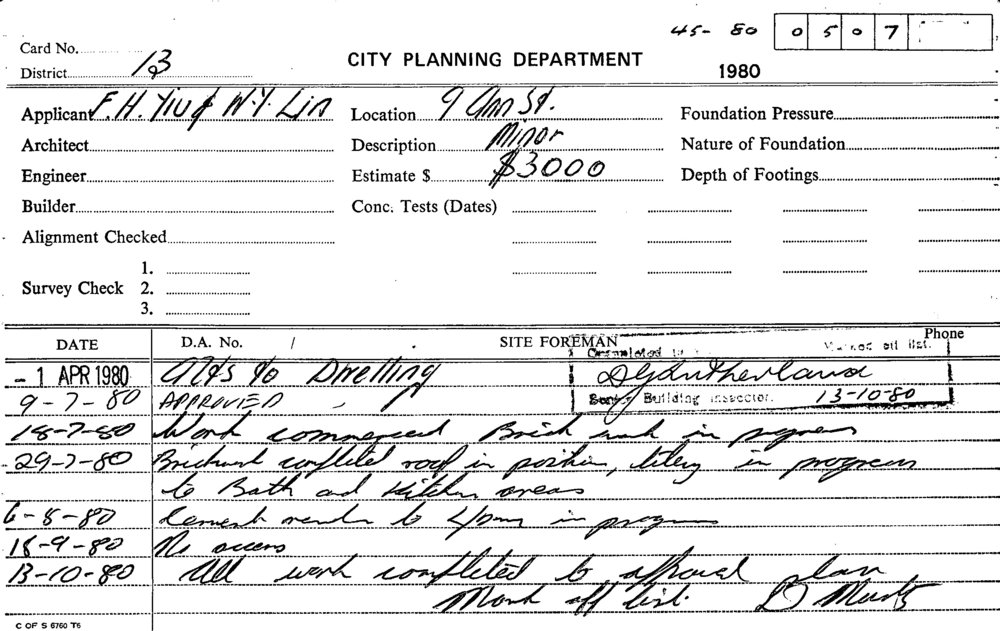 45-80 0507
Card No.
District 13
CITY PLANNING DEPARTMENT
1980
Applicant F.H. Yiu & W.Y. Lin
Location 9 Ann St.
Foundation Pressure
Architect
Description Minor
Nature of Foundation
Engineer
Estimate $ $3000
Depth of Footings
Builder
Conc. Tests (Dates)
Alignment Checked
1.
Survey Check 2.
3.
DATE D.A. No. / SITE FOREMAN Phone
Completed Marked off list.
- 1 APR 1980 Alts to Dwelling
D G Sutherland
9-7-80 APPROVED
Senior Building Inspector. 13-10-80
18-7-80 Work commenced Brick work in progress
29-7-80 Brickwork completed roof in position, tilery in progress
to Bath and Kitchen areas
6-8-80 Cement render to in progress
18-9-80 No access
13-10-80 All work completed to approval plan
Mark off list. D
C OF S 6760 T6